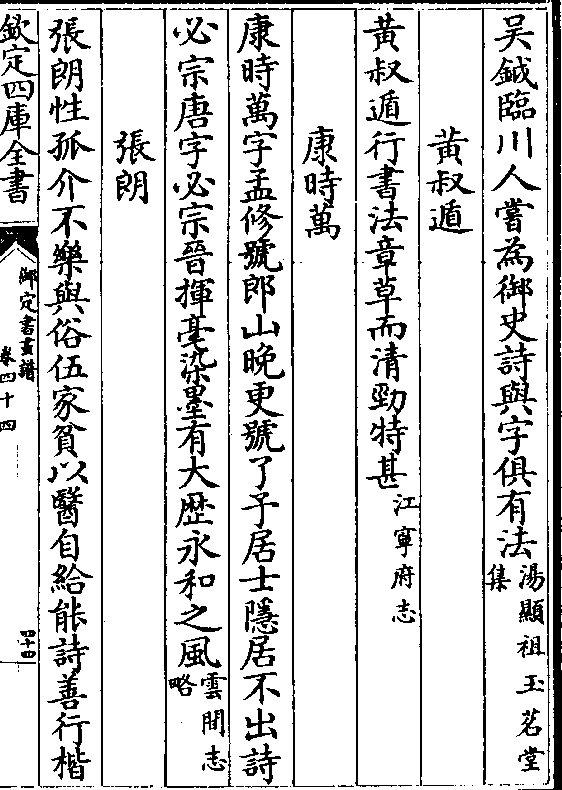 吴鉞臨川人嘗為御史詩與字俱有法湯顯祖玉茗堂集
黄叔遁
黄叔遁行書法章草而清勁特甚江寧府志
康時萬
康時萬字孟修號郎山晚更號了予居士隱居不出詩
必宗唐字必宗晉揮毫染墨有大歴永和之風雲間志略
張朗
張朗性孤介不樂與俗伍家貧以醫自給能詩善行楷
欽定四庫全書
御定書畫譜
卷四十四
四十四